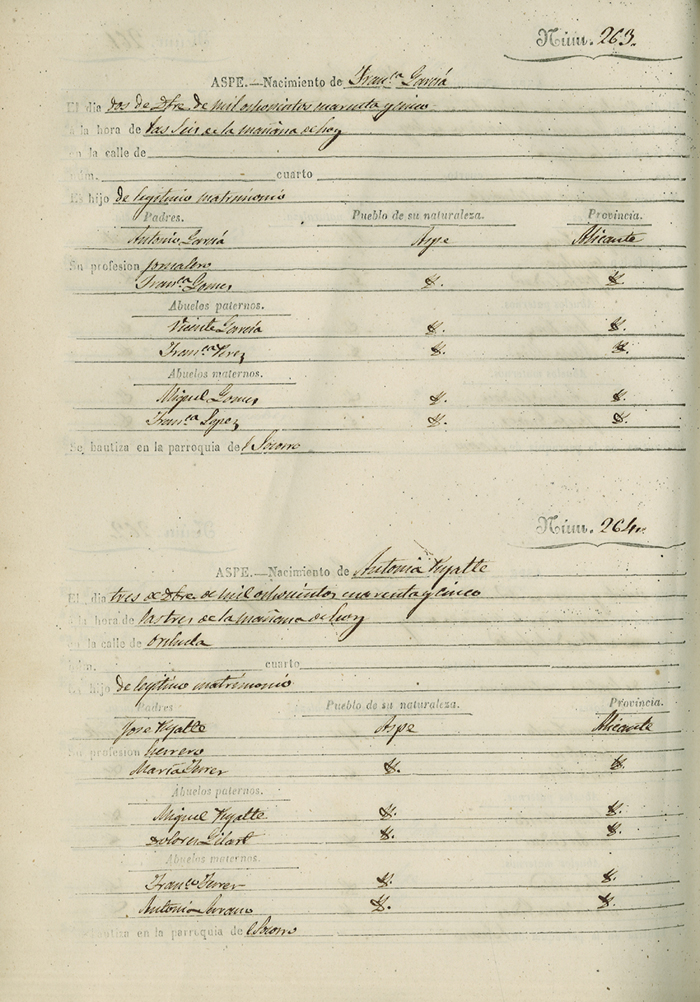 Núm. 263.
ASPE.—Nacimiento de Fran.ca García
El dia dos de Dbre. de mil ochocientos cuarenta y cinco
á la hora de las seis de la mañana de hoy
en la calle de
núm. cuarto
Es hijo de legitimo matrimonio
Padres. Pueblo de su naturaleza. Provincia.
Antonio García Aspe Alicante
Su profesion jornalero
Fran.ca Gomez
Abuelos paternos.
Vicente García
Fran.ca Perez
Abuelos maternos.
Miguel Gomez
Fran.ca Lopez
Se bautiza en la parroquia del Socorro
Núm. 264.
ASPE.—Nacimiento de Antonia
El dia tres de Dbre de mil ochocientos cuarenta y cinco
á la hora de las tres de la mañana de hoy
en la calle de Orihuela
núm. cuarto
Es hijo de legitimo matrimonio
Padres Pueblo de su naturaleza. Provincia.
Jose Aspe Alicante
Su profesion herrero
Maria Ferrer
Abuelos paternos.
Miguel
Dolores
Abuelos maternos.
Fran.co Ferrer
Antonia Serrano
Se bautiza en la parroquia del Socorro